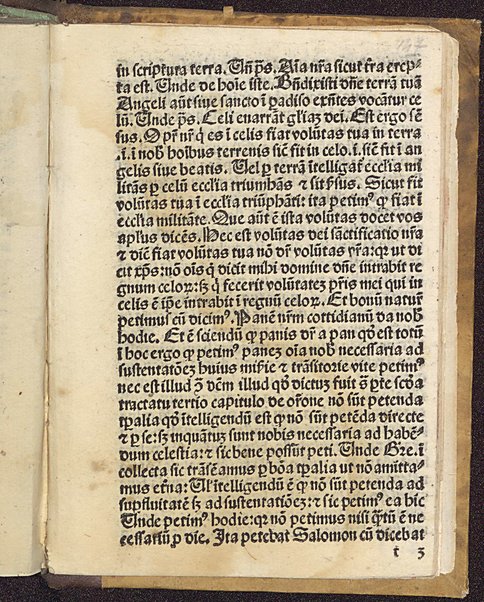 in scriptura terra. Uñ pš. Aĩa nr̃a sicut tr̃a erep-
ta est. Unde de hoĩe iste. Bñdixisti dñe terrã tuã
Angeli aũt siue sancto ĩ padiso exñtes vocãtur ce
lũ. Unde pš. Celi enarrãt glĩaz dei. Est ergo sẽ
sus. O pr̃ nr̃ q̃ es ĩ celis fiat volũtas tua in terra
.i. ĩ nob̃ hoĩbus terrenis sic̃ fit in celo .i. sic̃ fit ĩ an
gelis siue beatis. Uel p terrã ĩtelligat̃ eccl̃ia mi
litãs p celũ eccl̃ia triumphãs ⁊ sit p̃sus. Sicut fit
volũtas tua ĩ eccl̃ia triũphãti: ita petimꝰ ꝙ fiat ĩ
eccl̃ia militãte. Que aũt ẽ ista volũtas docet vos
apl̃us dicẽs. Hec est volũtas dei sãctificatio nr̃a
⁊ dic̃ fiat volũtas tua nõ dr̃ volũtas pr̃a: qꝛ ut di
cit xp̃s: nõ oĩs q̃ dicit mihi domine dñe intrabit re
gnum celoꝝ: sꝫ q̃ fecerit volũtatez pr̃is mei qui in
celis ẽ ip̃e intrabit ĩ regnũ celoꝝ. Et bonũ natur̃
petimus cũ dicimꝰ. Panẽ nr̃m cottidianũ da nob̃
hodie. Et ẽ sciendũ ꝙ panis dr̃ a pan qđ est totũ
ĩ hoc ergo ꝙ petimꝰ panez oĩa nob̃ necessaria ad
sustentatõez huius mis̃ie ⁊ trãsitorie vite petimꝰ
nec est illud ↄ̃ dẽm illud qđ dictuz fuit ĩ p̃te scđa
tractatu tertio capitulo de or̃one nõ sũt petenda
tp̃alia qđ ĩtelligendũ est ꝙ nõ sũt petẽda directe
⁊ p se: sꝫ inquãtuz sunt nobis necessaria ad habẽ-
dum celestia: ⁊ sic bene possũt peti. Unde Gre. ĩ
collecta sic trãseamus p bõa tp̃alia ut nõ amitta-
mus etr̃na: Ul̃ ĩtelligendũ ẽ ꝙ nõ sũt petenda ad
supfluitatẽ sꝫ ad sustentatiõez: ⁊ sic petimꝰ ea hic
Unde petimꝰ hodie: qꝛ nõ petimus nisi q̃tũ ẽ ne
cessariũ p die. Ita petebat Salomon cũ dicebat
t 3